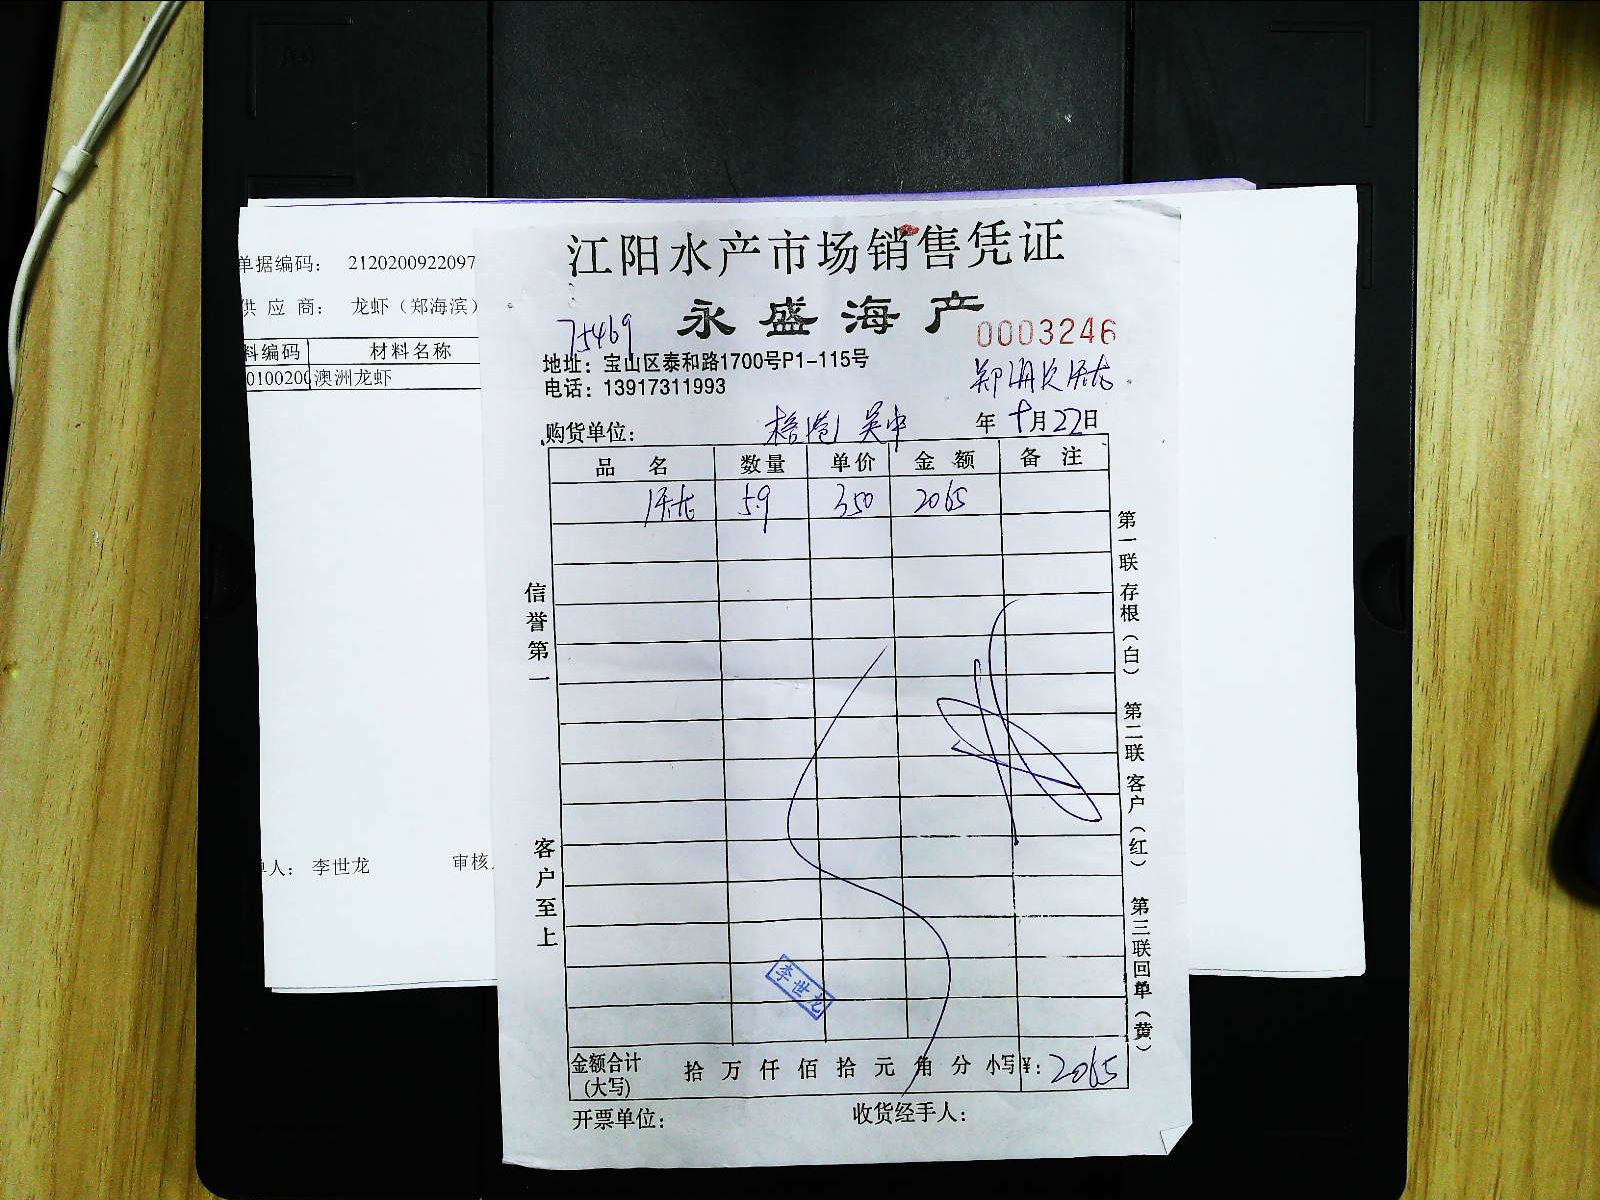 江阳水产市场销售凭证
永盛海产
75469
0003246
地址：宝山区泰和路1700号P1-115号
电话：13917311993
购货单位： 吴中 年 十月22日
品名 数量 单价 金额 备注
5.9 350 2065
信誉第一
客户至上
第一联 存根（白） 第二联 客户（红） 第三联 回单（黄）
李世龙
金额合计（大写） 拾 万 仟 佰 拾 元 角 分 小写¥：2065
开票单位： 收货经手人：
单据编码： 2120200922097
供应商： 龙虾（郑海滨）
料编码 材料名称
0100200 澳洲龙虾
单人： 李世龙 审核